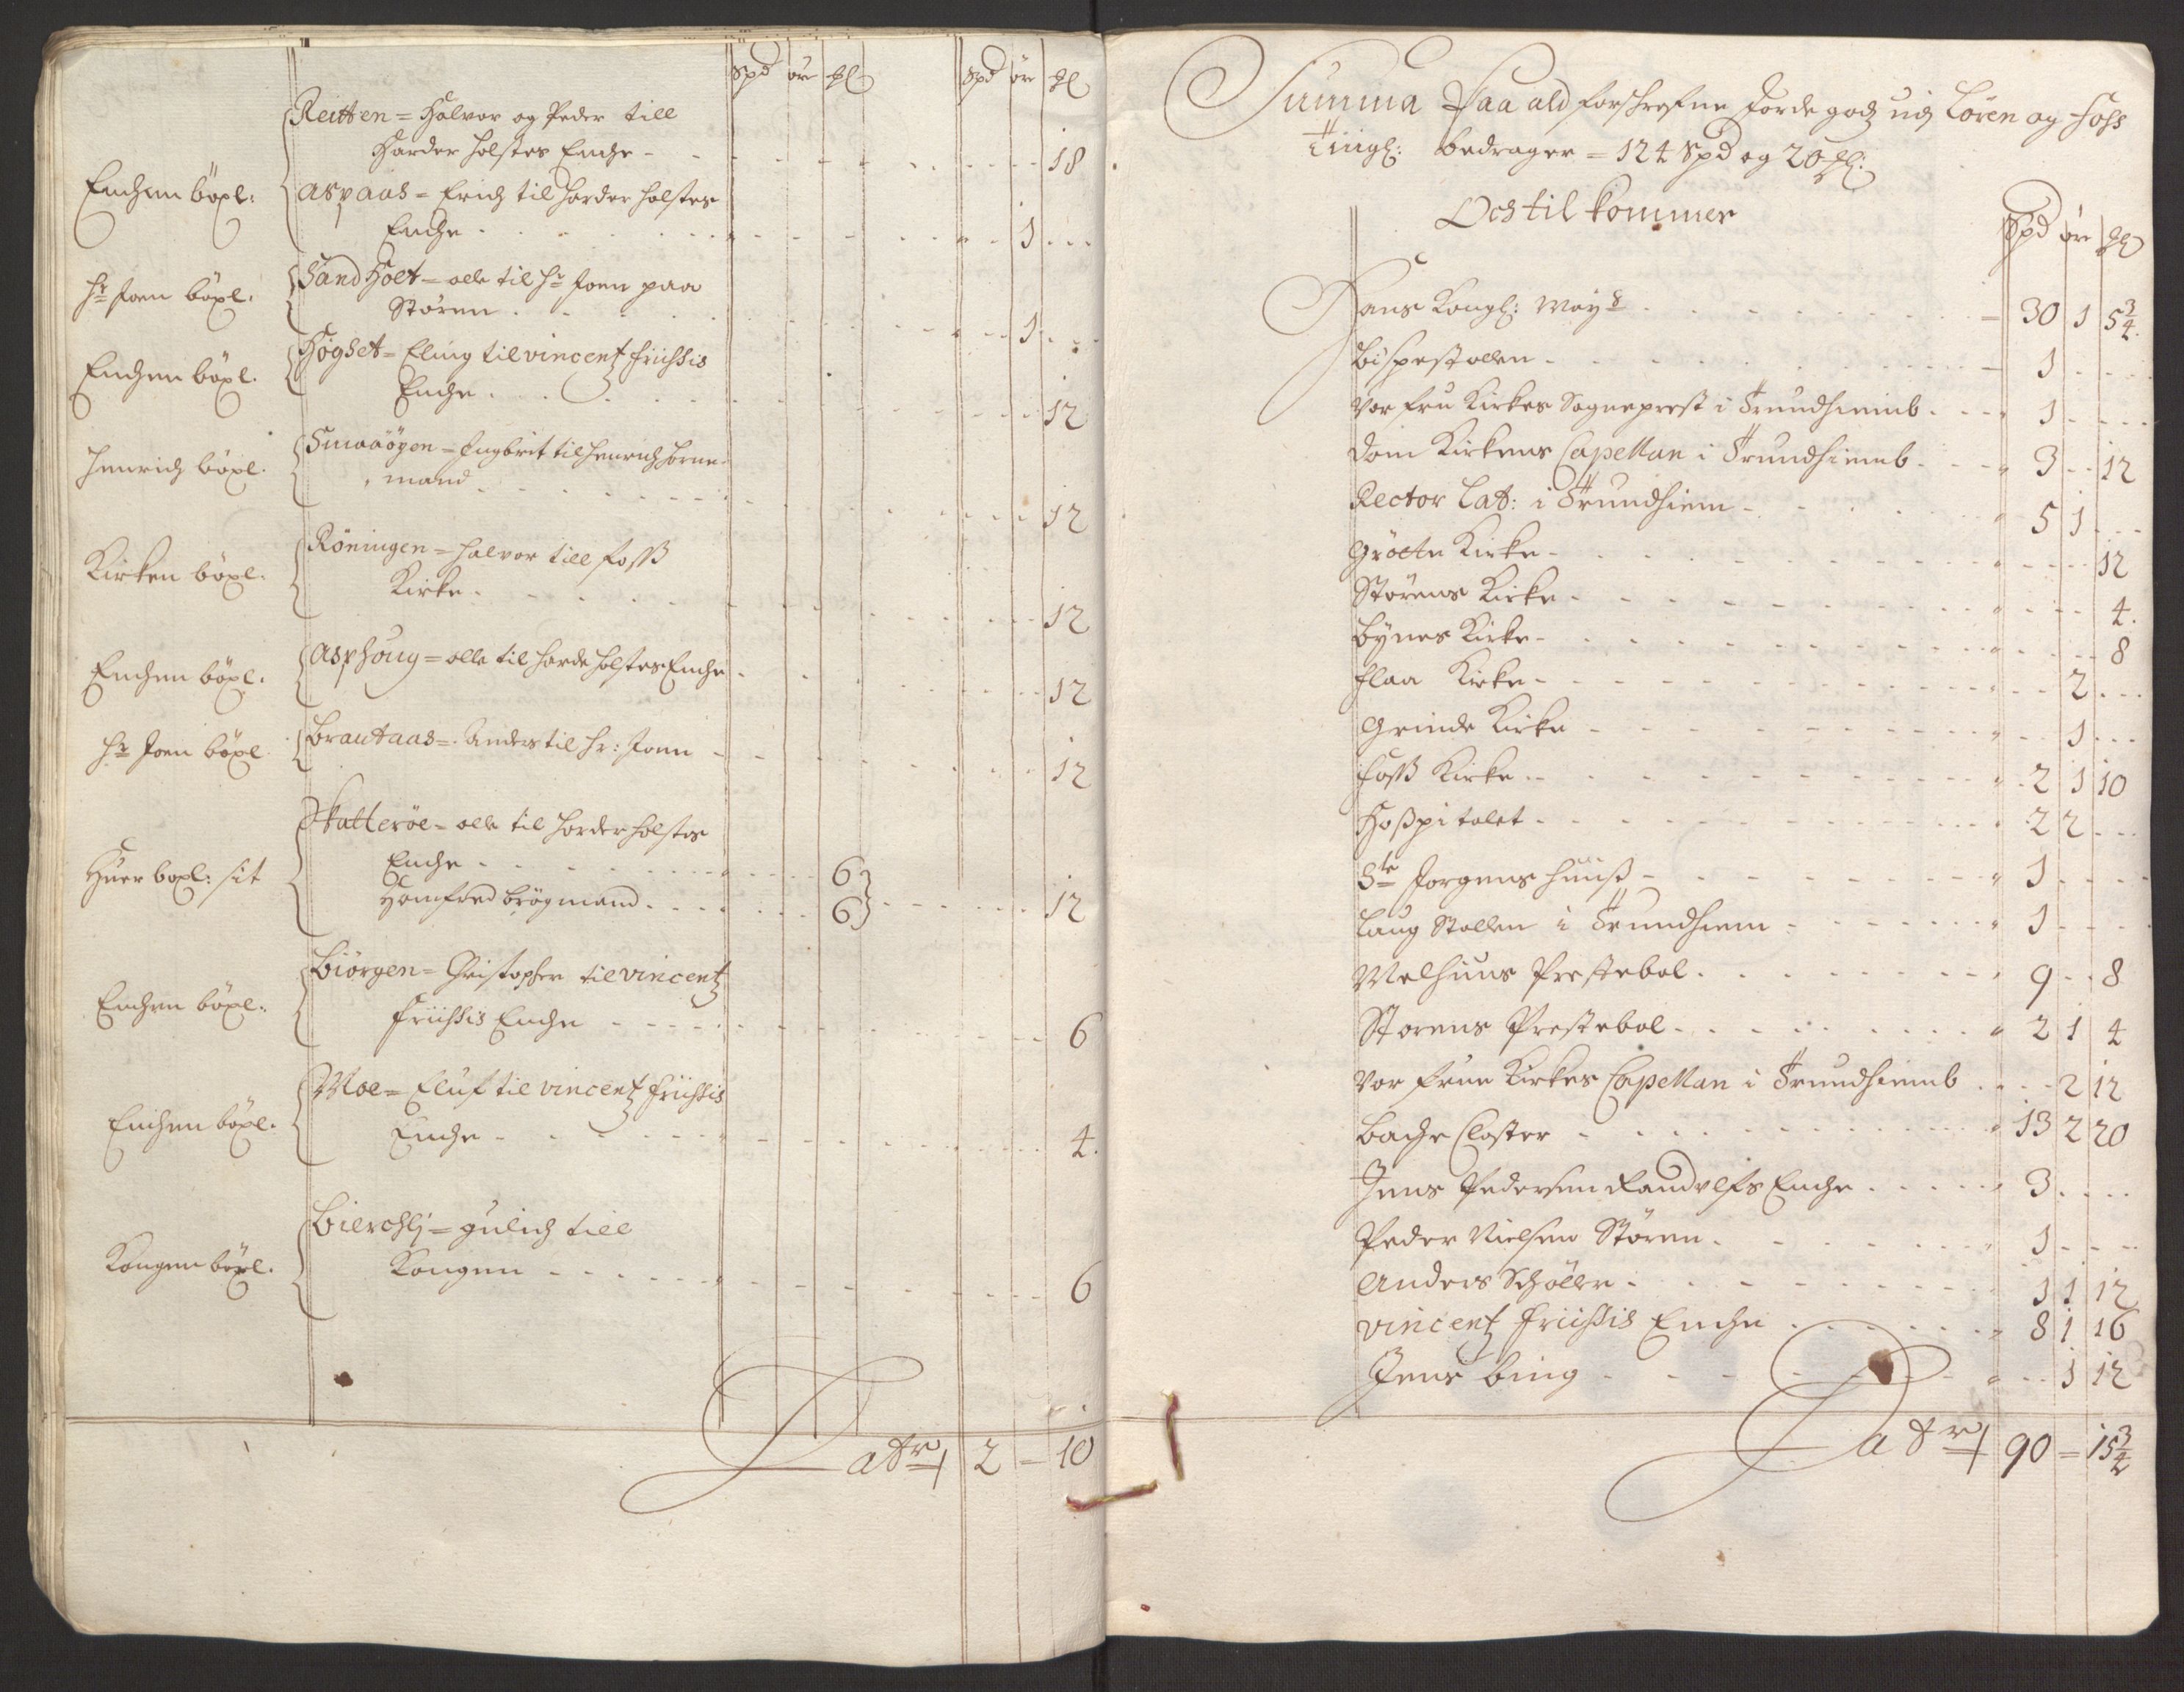 Spd öre ℳl Spd öre ℳl
Reitten = Halvor og Peder till
Harder Holstes Enche - 18
Enchen böxl:
Aspaas = Erich til Harder Holstes
Enche . 1
Hr Joen böxl.
Sandhoet = olle til Hr Joen paa
Stören . 1
Enchen böxl.
Högset = Eling til vincentz friissis
Enche . 12
Henrich böxl.
Smaaöyen = Ingbrit til Henrich Horne-
mand 12
Kirken böxl.
Röningen = Halvor till foss
Kirke . 12
Enchen böxl.
Asphoug = olle til Harde Holstes Enche 12
Hr Joen böxl.
Brautaas = Anders til Hr: Joen - 12
Huer boxl: sit
Skatteröe = olle til Harder Holstes
Enche . 6
Homfred brögmand . 6 12
Enchen böxl.
Biörgen = Christopher til vincentz
friissis Enche 6
Enchen böxl.
Moe = Eluf til vincentz friissis
Enche - 4.
Kongen böxl.
Bierchlj = gulich till
Kongen 6
Latr 2 = 10
Summa Paa ald forschrefne Jorde godz udj Lören og Foss
Tingl: bedrager = 124 Spd og 20 ℳl:
Och tilkommer
Spd öre ℳl
Hans Kongl: Mayt 30 1 5 3/4.
Bispestollen - 1
Vor frue Kirkes Sogneprest i Trundhiemb . 1
Dom Kirkens Capellan i Trundhiemb - 3 12
Rector Lat: i Trundhiem - 5 1
Gröette Kirke - 12
Störens Kirke - 4.
Bynes Kirke - 8
Flaa Kirke - 2
Grinde Kirke 1
Foss Kirke . 2 1 10
Hospitalet . 2 2
Ste Jorgens Huuss - 1
Laug Stollen i Trundhiem 1
Melhuus Prestebol . 9 8
Störens Prestebol . 2 1 4
Vor frue Kirkes Capellan i Trundhiemb . 2 12
Bache Closter - 13 2 20
Jens Pedersen Randulfs Enche . 3
Peder Nielsen Stören . 1
Anders Schöller . 1 1 12
vincentz friissis Enche . 8 1 16
Jens bing 1 12
Latr 90 = 15 3/4